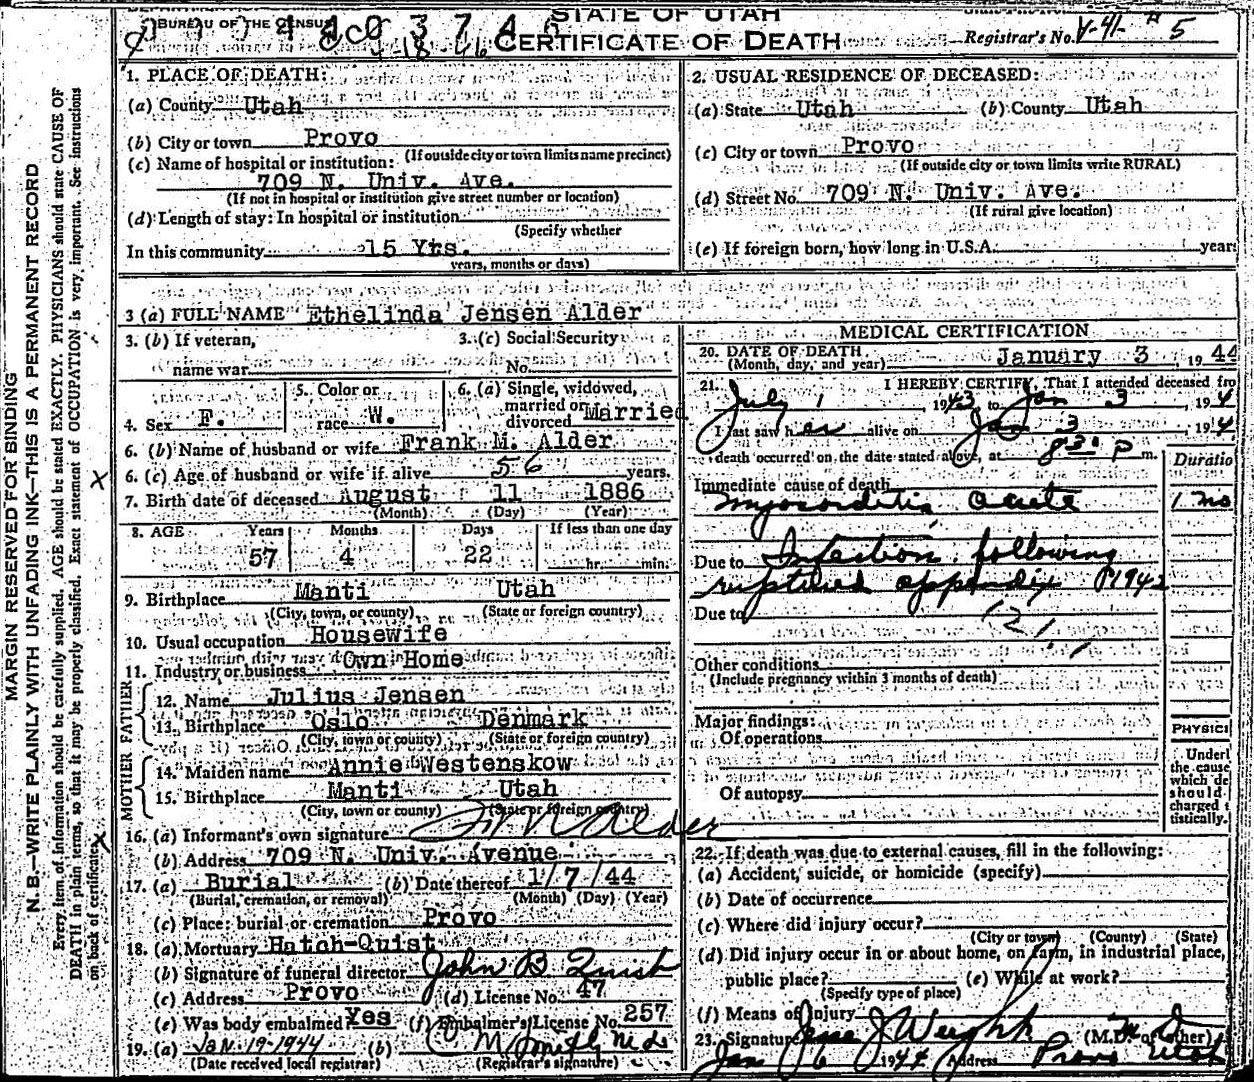 BUREAU OF THE CENSUS
STATE OF UTAH
CERTIFICATE OF DEATH
Registrar's No. V-41- 5
MARGIN RESERVED FOR BINDING
N. B.—WRITE PLAINLY WITH UNFADING INK—THIS IS A PERMANENT RECORD
Every item of information should be carefully supplied. AGE should be stated EXACTLY. PHYSICIANS should state CAUSE OF
DEATH in plain terms, so that it may be properly classified. Exact statement of OCCUPATION is very important. See instructions
on back of certificate.
1. PLACE OF DEATH:
(a) County Utah
(b) City or town Provo
(If outside city or town limits name precinct)
(c) Name of hospital or institution:
709 N. Univ. Ave.
(If not in hospital or institution give street number or location)
(d) Length of stay: In hospital or institution
(Specify whether
In this community 15 Yrs.
years, months or days)
2. USUAL RESIDENCE OF DECEASED:
(a) State Utah (b) County Utah
(c) City or town Provo
(If outside city or town limits write RURAL)
(d) Street No. 709 N. Univ. Ave.
(If rural give location)
(e) If foreign born, how long in U.S.A. years
3 (a) FULL NAME Ethelinda Jensen Alder
3. (b) If veteran,
name war
3. (c) Social Security
No.
4. Sex F.
5. Color or
race W.
6. (a) Single, widowed,
married or
divorced Married
6. (b) Name of husband or wife Frank M. Alder
6. (c) Age of husband or wife if alive 56 years.
7. Birth date of deceased August 11 1886
(Month) (Day) (Year)
8. AGE Years Months Days If less than one day
57 4 22 hr. min.
9. Birthplace Manti Utah
(City, town, or county) (State or foreign country)
10. Usual occupation Housewife
11. Industry or business Own Home
FATHER
12. Name Julius Jensen
13. Birthplace Oslo Denmark
(City, town or county) (State or foreign country)
MOTHER
14. Maiden name Annie Westenskow
15. Birthplace Manti Utah
(City, town or county) (State or foreign country)
16. (a) Informant's own signature Alder
(b) Address 709 N. Univ. Avenue
17. (a) Burial (b) Date thereof 1/7/44
(Burial, cremation, or removal) (Month) (Day) (Year)
(c) Place: burial or cremation Provo
18. (a) Mortuary Hatch-Quist
(b) Signature of funeral director John B Quist
(c) Address Provo (d) License No. 47
(e) Was body embalmed? Yes (f) Embalmer's License No. 257
19. (a) JAN-19-1944 (b)
(Date received local registrar) (Registrar's signature)
MEDICAL CERTIFICATION
20. DATE OF DEATH January 3 , 19 44
(Month, day, and year)
21. I HEREBY CERTIFY, That I attended deceased fro
July 1 , 1943 to Jan 3 , 19 4
I last saw her alive on Jan 3 , 19 4
death occurred on the date stated above, at 8 30 P m.
Duratio
Immediate cause of death
Myocorditis Acute 1 mo
Due to Infection following
ruptured appendix
Due to
Other conditions
(Include pregnancy within 3 months of death)
Major findings:
Of operations
Of autopsy
PHYSICI
Underl
the cause
which de
should
charged
tistically.
22. If death was due to external causes, fill in the following:
(a) Accident, suicide, or homicide (specify)
(b) Date of occurrence
(c) Where did injury occur?
(City or town) (County) (State)
(d) Did injury occur in or about home, on farm, in industrial place,
public place? (e) While at work?
(Specify type of place)
(f) Means of Injury
23. Signature (M.D. or other)
Jan 6 1944 Address Provo Utah